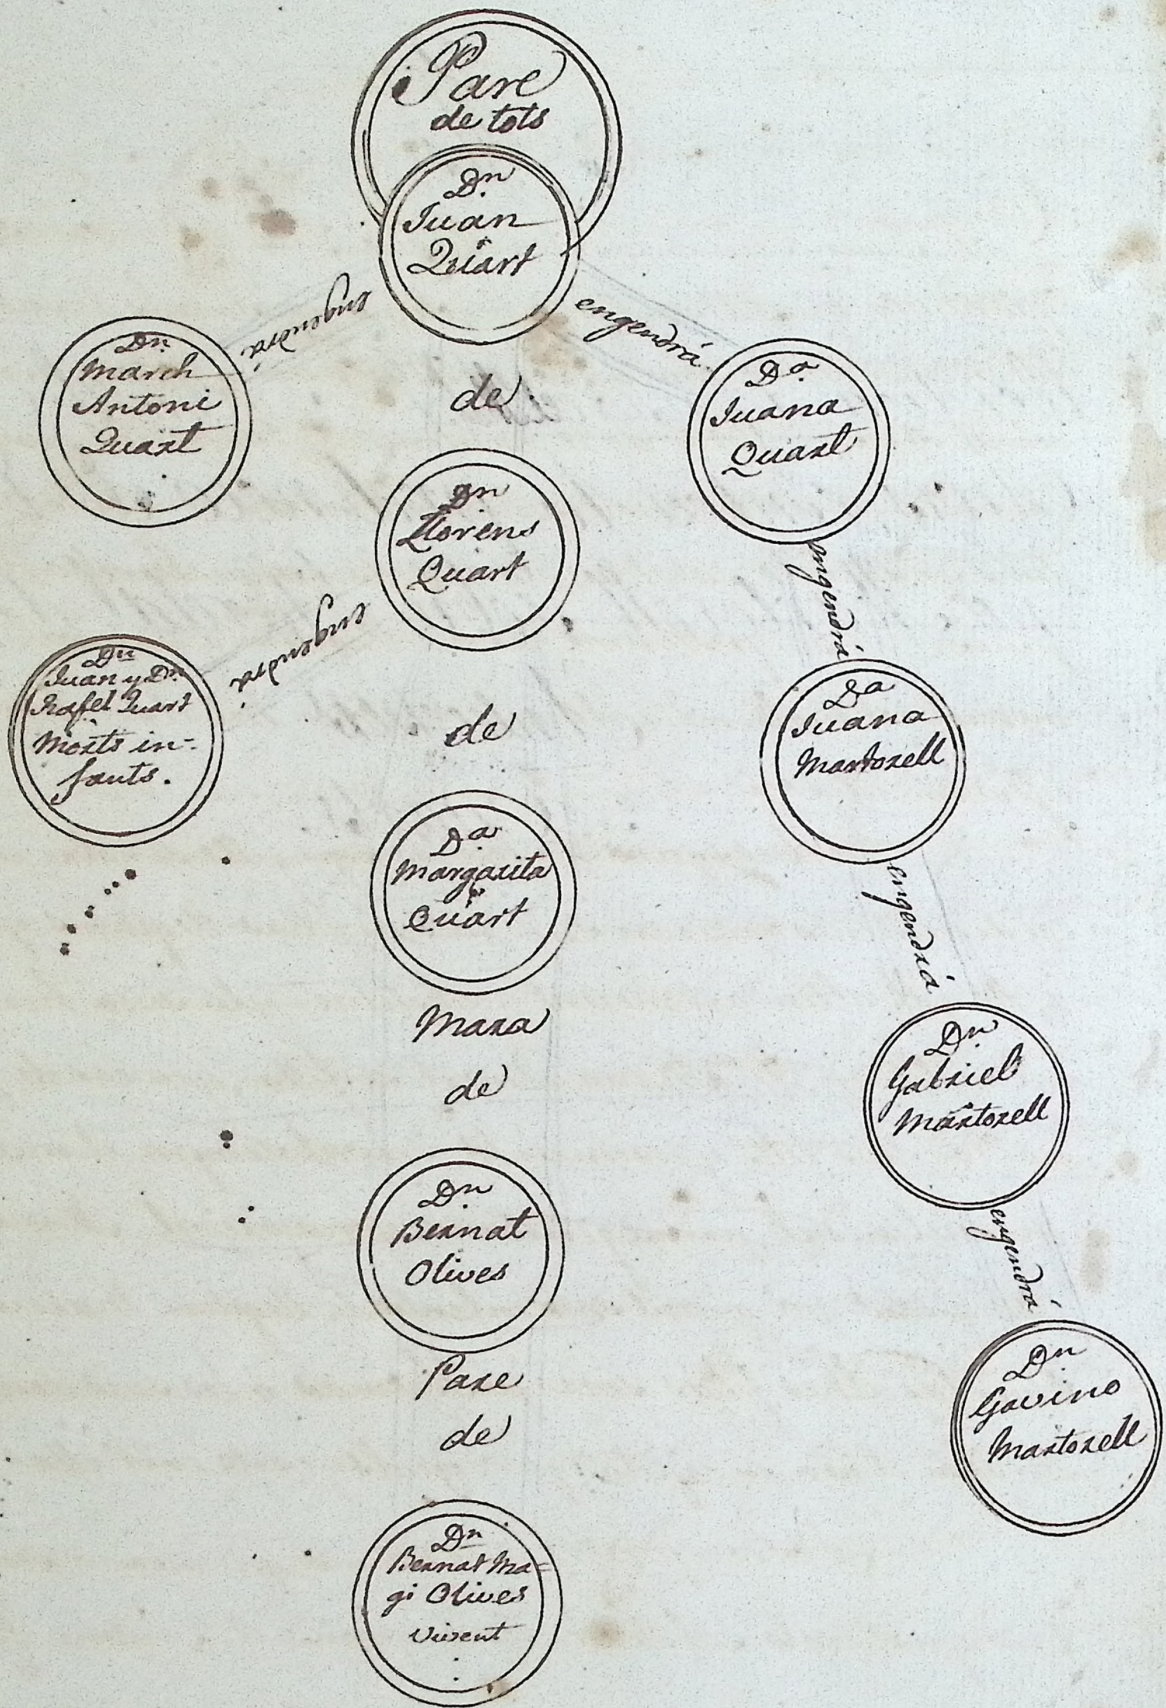 Pare
de tots
Dn
Juan
Quart
engendrá
engendrá
Dn
March
Antoni
Quart
de
Da
Juana
Quart
Dn
Llorens
Quart
engendrá
engendrá
Dn
Juan y Dn
Rafel Quart
Morts in-
fants.
de
Da
Juana
Martorell
Da
Margarita
Quart
engendrá
Mara
de
Dn
Gabriel
Martorell
Dn
Bernat
Olives
engendrá
Pare
de
Dn
Gavino
Martorell
Dn
Bernat Ma=
gi Olives
vivent